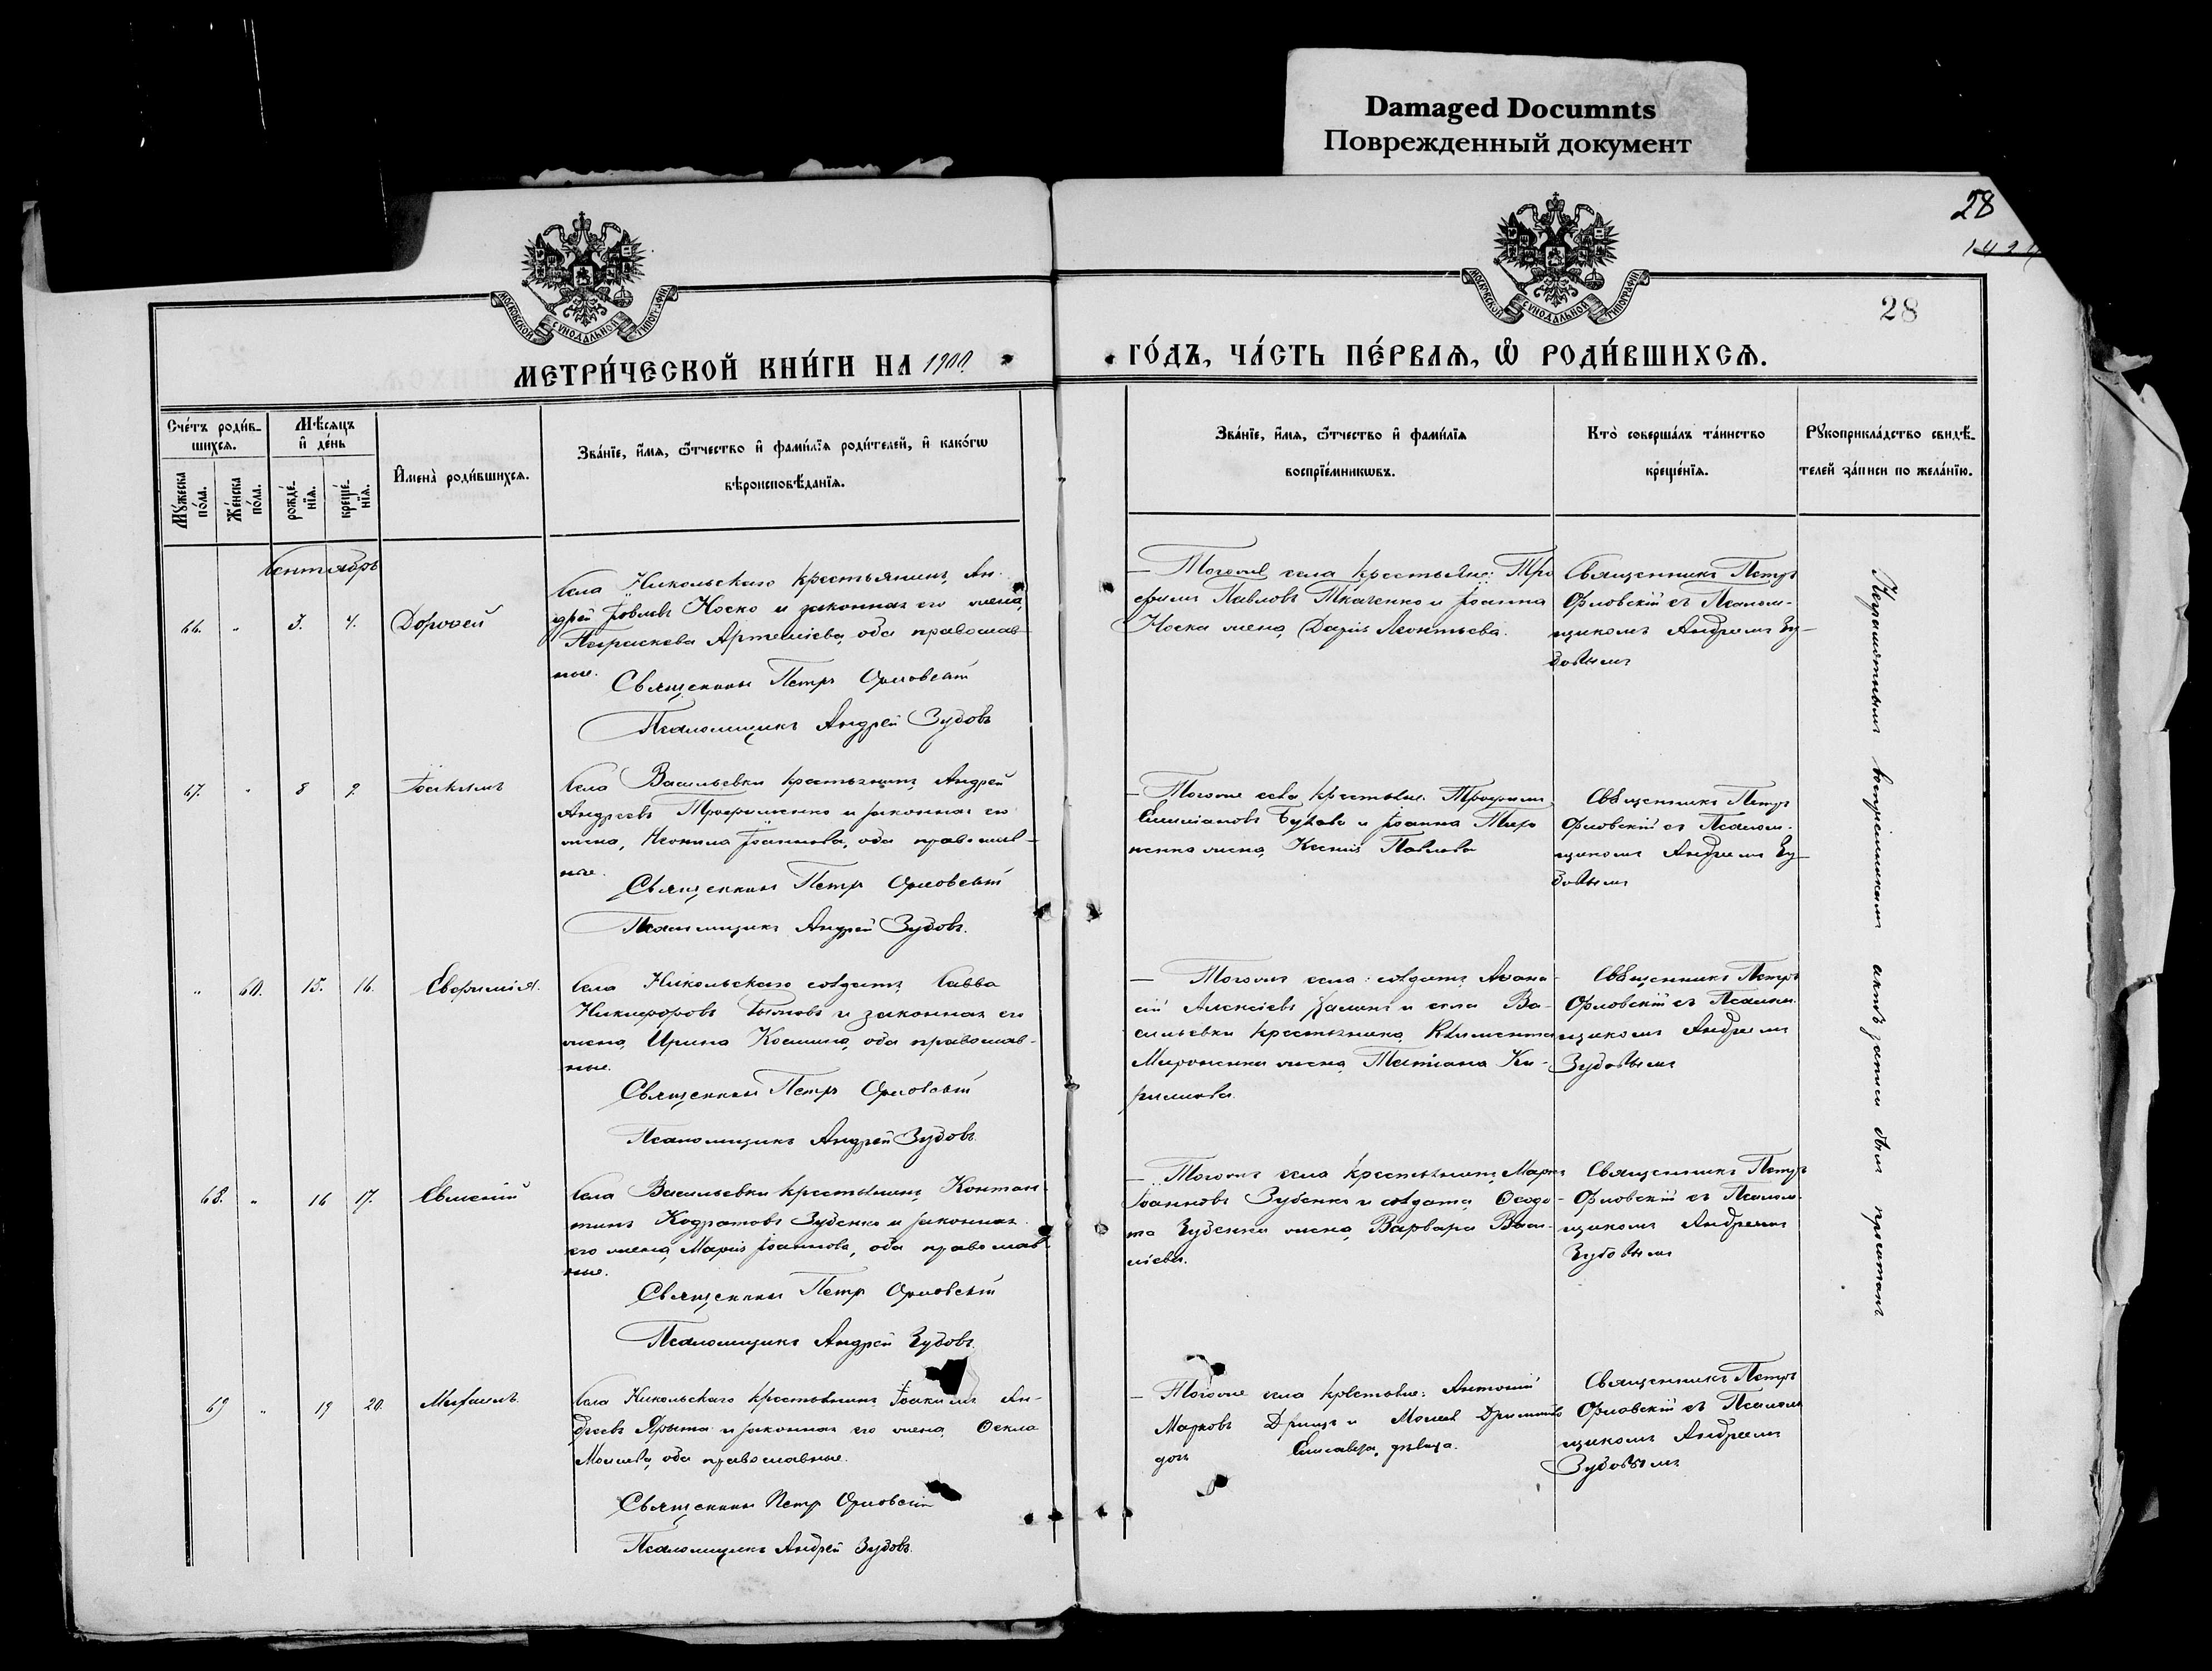 Damaged Documnts
Поврежденный документ
28
28
МОСКОВСКОЙ СѴНОДАЛЬНОЙ ТИПОГРАФІИ
МОСКОВСКОЙ СѴНОДАЛЬНОЙ ТИПОГРАФІИ
МЕТРИ́ЧЕСКОЙ КНИ́ГИ НА 1900
ГО́ДЪ, ЧА́СТЬ ПЕ́РВАѦ, Ѡ҆ РОДИ́ВШИХСѦ.
Сче́тъ роди́в-
шихсѧ.
Мꙋ́жеска по́ла.
Же́нска по́ла.
Мѣ́сѧцъ и҆ де́нь
рожде́-
нїѧ.
креще́-
нїѧ.
И҆мена̀ роди́вшихсѧ.
Зва́нїе, и҆́мѧ, ѻ҆́тчество и҆ фами́лїѧ роди́телей, и҆ како́гѡ
вѣроисповѣ́данїѧ.
Зва́нїе, и҆́мѧ, ѻ҆́тчество и҆ фами́лїѧ
воспрїе́мникѡвъ.
Кто̀ соверша́лъ та́инство
креще́нїѧ.
Рꙋкоприкла́дство свидѣ́-
телей за́писи по жела́нїю.
Сентябрь
66. " 3. 4. Дороѳей
Села Никольскаго крестьянинъ Ан-
дрей Іовлевъ Носко и законная его жена
Параскева Артеміева, оба православ-
ные.
Священникъ Петръ Орловскій
Псаломщикъ Андрей Зубовъ
— Тогоже села крестьяне: Тро
фимъ Павловъ Ткаченко и Іоанна
Носка жена Дарія Леонтьева.
Священникъ Петръ
Орловскій съ Псалом-
щикомъ Андреемъ Зу-
бовымъ
67. " 8 9. Іоакимъ
Села Васильевки крестьянинъ Андрей
Андреевъ Трофименко и законная его
жена, Неонила Іоаннова, оба православ-
ные.
Священникъ Петръ Орловскій
Псаломщикъ Андрей Зубовъ.
— Тогоже села крестьяне: Трофимъ
и Іоанна
жена Ксенія Павлова
Священникъ Петръ
Орловскій съ Псалом-
щикомъ Андреемъ Зу-
бовымъ
" 60. 15. 16. Евфимія.
Села Никольскаго солдатъ Савва
Никифоровъ и законная его
жена Ирина Космина, оба православ-
ные.
Священникъ Петръ Орловскій
Псаломщикъ Андрей Зубовъ.
— Тогоже села: солдатъ Аѳана-
сій Алексіевъ и села Ва-
сильевки крестьянина Климента
Мироненка жена Татіана Ки-
риллова.
Священникъ Петръ
Орловскій съ Псалом-
щикомъ Андреемъ
Зубовымъ
68. " 16 17. Евменій
Села Васильевки крестьянинъ Констан-
тинъ Кодратовъ Зубенко и законная
его жена, Марія Іоаннова, оба православ-
ные.
Священникъ Петръ Орловскій
Псаломщикъ Андрей Зубовъ.
— Тогоже села крестьянинъ Маркъ
Іоанновъ Зубенко и солдата Ѳеодо-
та Зубенка жена, Варвара Васи-
ліева.
Священникъ Петръ
Орловскій съ Псалом-
щикомъ Андреемъ
Зубовымъ
69 " 19 20. Михаилъ.
Села Никольскаго крестьянинъ Іоакимъ Ан-
дреевъ и законная его жена Ѳекла
Моисіева, оба православные.
Священникъ Петръ Орловскій
Псаломщикъ Андрей Зубовъ.
— Тогоже села крестьяне: Антоній
Марковъ и Моисея
дочь Елисавета, дѣвица.
Священникъ Петръ
Орловскій съ Псалом
щикомъ Андреемъ
Зубовымъ
Неграмотнымъ воспріемникамъ актъ записи былъ прочитанъ